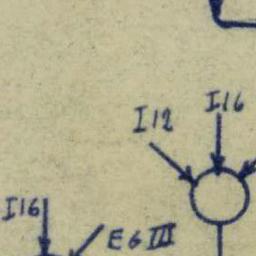 I16
I12
I16
E6 III